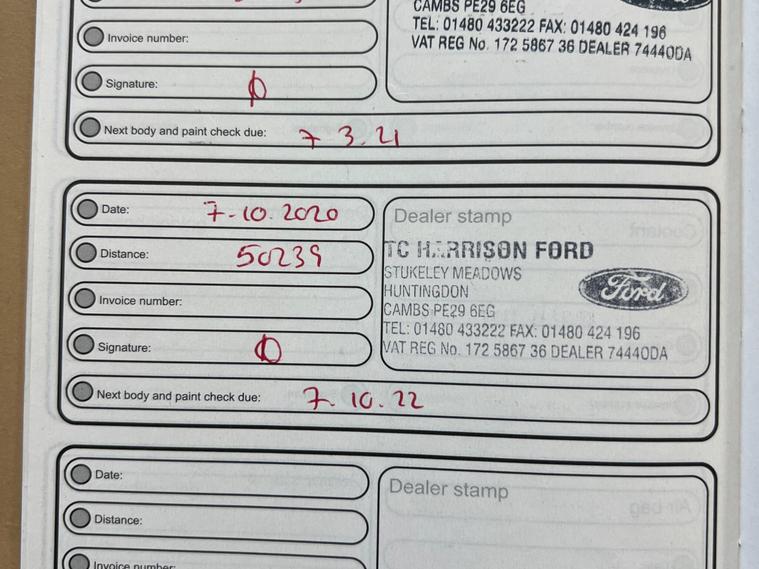 CAMBS PE29 6EG
TEL: 01480 433222 FAX: 01480 424 196
VAT REG No. 172 5867 36 DEALER 74440DA
Invoice number:
Signature:
Next body and paint check due: 7 3. 21
Date: 7-10.2020
Distance: 50239
Invoice number:
Signature:
Next body and paint check due: 7.10.22
Dealer stamp
TC HARRISON FORD
STUKELEY MEADOWS
HUNTINGDON
CAMBS PE29 6EG
TEL: 01480 433222 FAX: 01480 424 196
VAT REG No. 172 5867 36 DEALER 74440DA
Ford
Date:
Distance:
Invoice number:
Dealer stamp